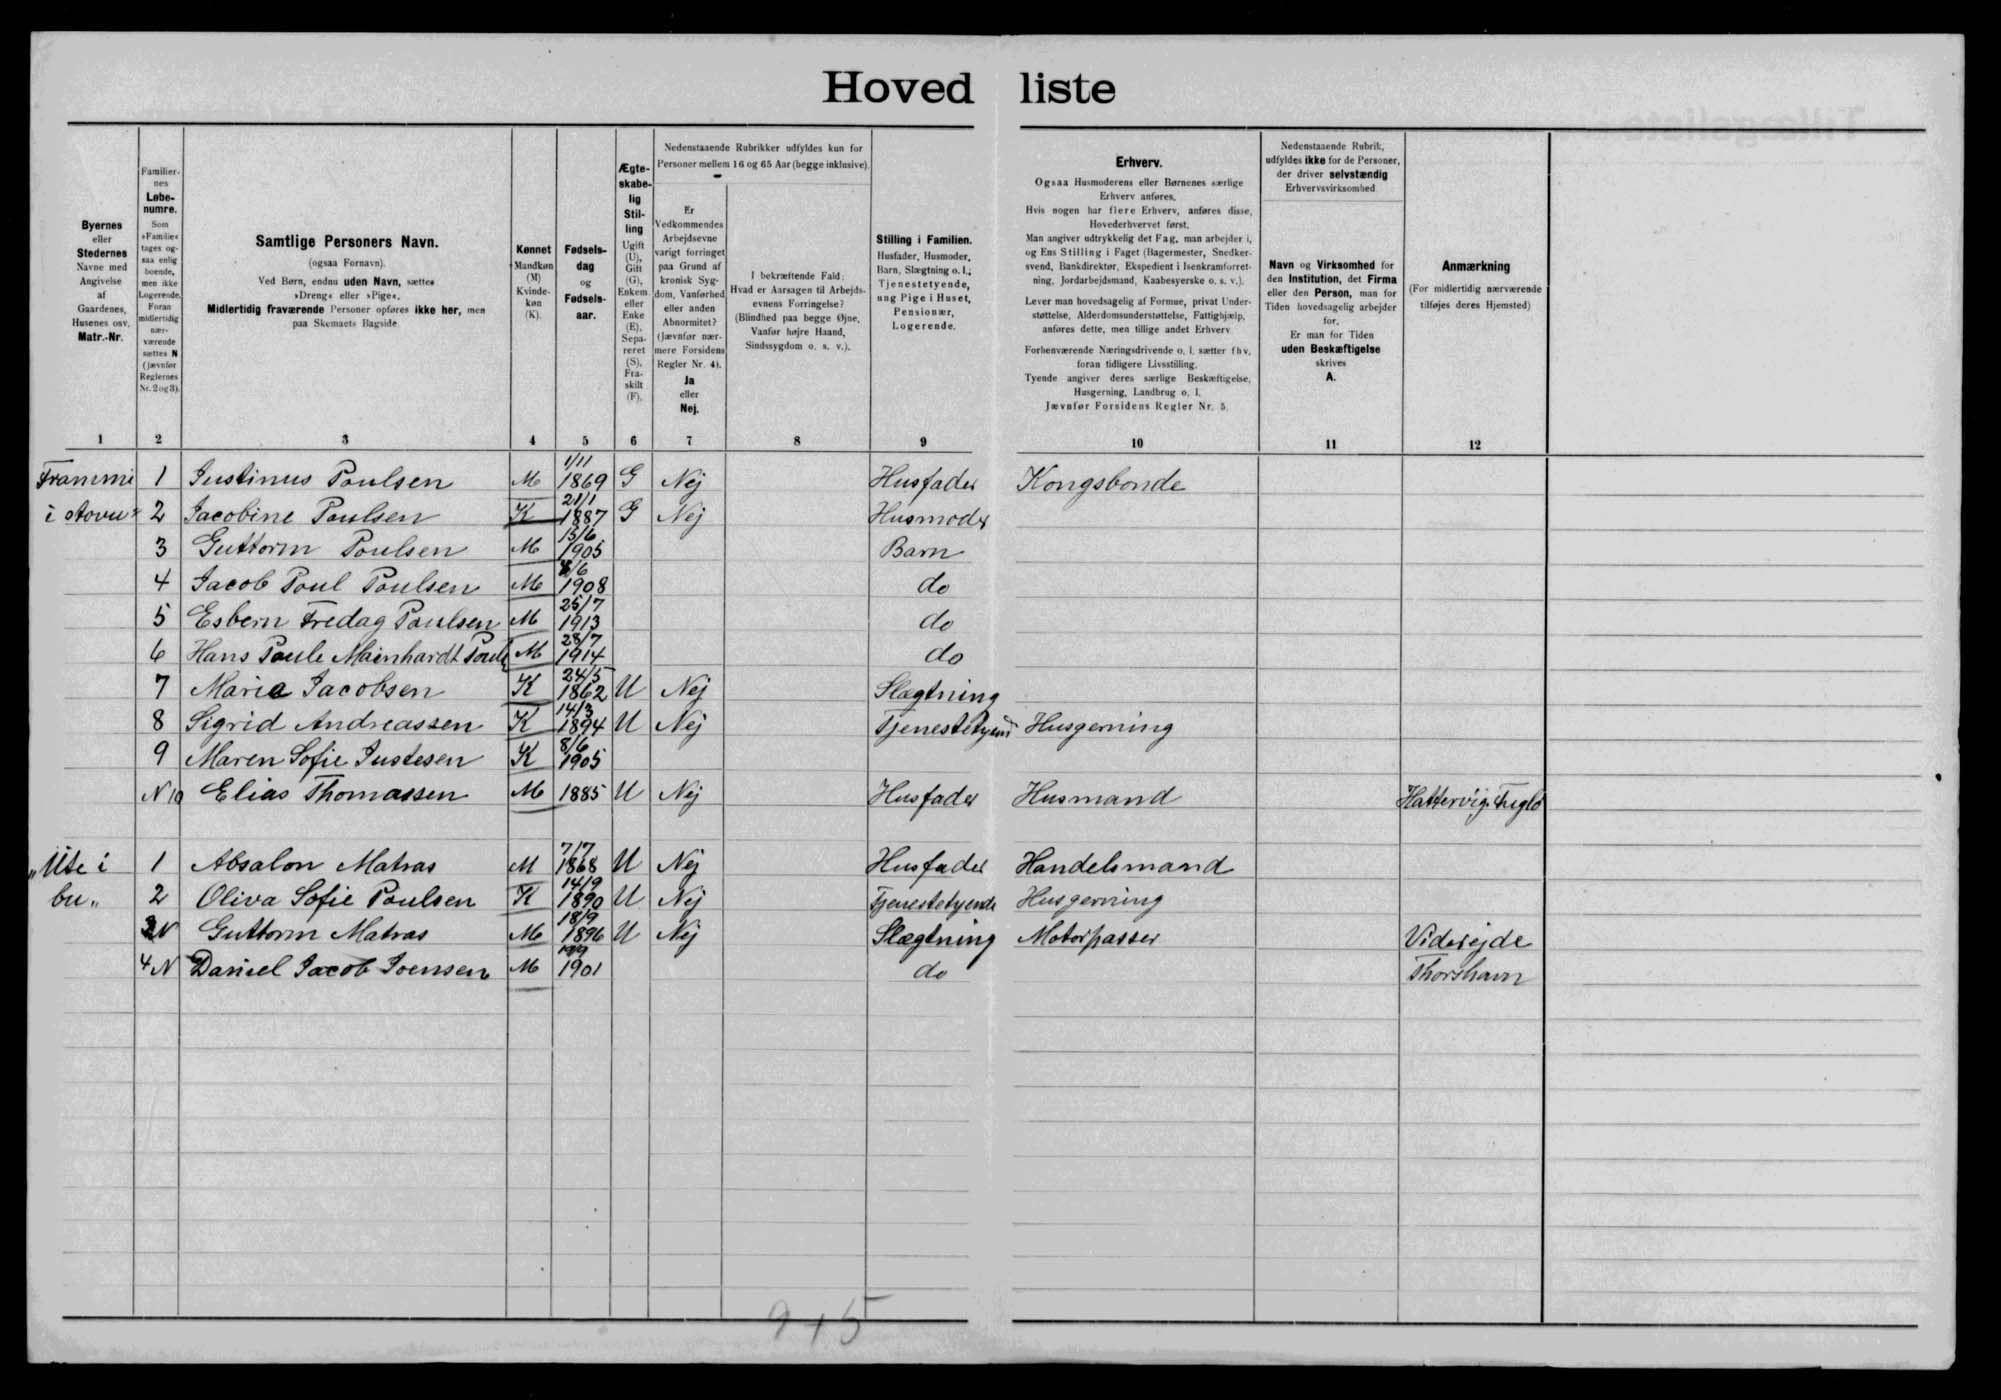 Hovedliste
Byernes
eller
Stedernes
Navne med
Angivelse
af
Gaardenes,
Husenes osv.
Matr.-Nr.
Familier-
nes
Løbe-
numre.
Som
»Familie«
tages og-
saa enlig
boende,
men ikke
Logerende.
Foran
midlertidig
nær-
værende
sættes N
(jævnfør
Reglernes
Nr. 2 og 3).
Samtlige Personers Navn.
(ogsaa Fornavn).
Ved Børn, endnu uden Navn, sættes
»Dreng« eller »Pige«.
Midlertidig fraværende Personer opføres ikke her, men
paa Skemaets Bagside.
Kønnet
Mandkøn
(M)
Kvinde-
køn
(K).
Fødsels-
dag
og
Fødsels-
aar.
Ægte-
skabe-
lig
Stil-
ling
Ugift
(U),
Gift
(G),
Enkem.
eller
Enke
(E),
Sepa-
reret
(S),
Fra-
skilt
(F).
Nedenstaaende Rubrikker udfyldes kun for
Personer mellem 16 og 65 Aar (begge inklusive).
Er
Vedkommendes
Arbejdsevne
varigt forringet
paa Grund af
kronisk Syg-
dom, Vanførhed
eller anden
Abnormitet?
(Jævnfør nær-
mere Forsidens
Regler Nr. 4).
Ja
eller
Nej.
I bekræftende Fald:
Hvad er Aarsagen til Arbejds-
evnens Forringelse?
(Blindhed paa begge Øjne,
Vanfør højre Haand,
Sindssygdom o. s. v.).
Stilling i Familien.
Husfader, Husmoder,
Barn, Slægtning o. l.;
Tjenestetyende,
ung Pige i Huset,
Pensionær,
Logerende.
Erhverv.
Ogsaa Husmoderens eller Børnenes særlige
Erhverv anføres.
Hvis nogen har flere Erhverv, anføres disse,
Hovederhvervet først.
Man angiver udtrykkelig det Fag, man arbejder i,
og Ens Stilling i Faget (Bagermester, Snedker-
svend, Bankdirektør, Ekspedient i Isenkramforret-
ning, Jordarbejdsmand, Kaabesyerske o. s. v.).
Lever man hovedsagelig af Formue, privat Under-
støttelse, Alderdomsunderstøttelse, Fattighjælp,
anføres dette, men tillige andet Erhverv
Forhenværende Næringsdrivende o. l. sætter fhv.
foran tidligere Livsstilling.
Tyende angiver deres særlige Beskæftigelse,
Husgerning, Landbrug o. l.
Jævnfør Forsidens Regler Nr. 5.
Nedenstaaende Rubrik,
udfyldes ikke for de Personer,
der driver selvstændig
Erhvervsvirksomhed
Navn og Virksomhed for
den Institution, det Firma
eller den Person, man for
Tiden hovedsagelig arbejder
for.
Er man for Tiden
uden Beskæftigelse
skrives
A.
Anmærkning
(For midlertidig nærværende
tilføjes deres Hjemsted)
1 2 3 4 5 6 7 8 9 10 11 12
Frammi 1 Justinus Poulsen M 1/11 1869 G Nej Husfader Kongsbonde
i stovu" 2 Jacobine Poulsen K 21/1 1887 G Nej Husmoder
3 Guttorm Poulsen M 15/6 1905 Barn
4 Jacob Poul Poulsen M /6 1908 do
5 Esbern Fredag Poulsen M 25/7 1913 do
6 Hans Paule Mainhardt Pouls M 28/7 1914 do
7 Maria Jacobsen K 24/5 1862 U Nej Slægtning
8 Sigrid Andreassen K 14/3 1894 U Nej Tjenestetyend Husgerning
9 Maren Sofie Justesen K 8/6 1905
N 10 Elias Thomassen M 1885 U Nej Husfader Husmand Hattervig. Fuglø
"Ute i 1 Absalon Matras M 7/7 1868 U Nej Husfader Handelsmand
bu" 2 Oliva Sofie Poulsen K 14/9 1890 U Nej Tjenestetyende Husgerning
3N Guttorm Matras M 18/9 1896 U Nej Slægtning Motorpasser Viderejde
4 N Daniel Jacob Joensen M 1901 do Thorshavn
9+5